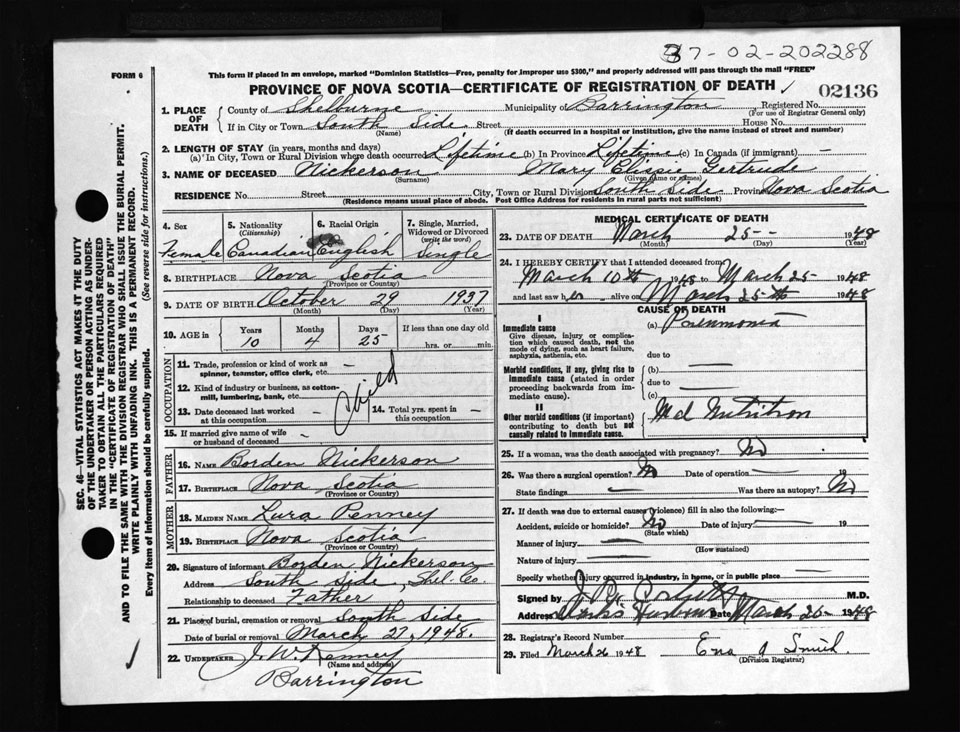 37-02-202288
FORM 6
This form if placed in an envelope, marked "Dominion Statistics—Free, penalty for improper use $300," and properly addressed will pass through the mail "FREE"
PROVINCE OF NOVA SCOTIA—CERTIFICATE OF REGISTRATION OF DEATH
02136
1. PLACE OF DEATH
County of Shelburne Municipality of Barrington Registered No.
(For use of Registrar General only)
If in City or Town South Side Street House No.
(Name) (If death occurred in a hospital or institution, give the name instead of street and number)
2. LENGTH OF STAY (in years, months and days)
(a) In City, Town or Rural Division where death occurred Lifetime (b) In Province Lifetime (c) In Canada (if immigrant) —
3. NAME OF DECEASED Nickerson Mary Gertrude
(Surname) (Given name or names)
RESIDENCE No. Street City, Town or Rural Division South Side Province Nova Scotia
(Residence means usual place of abode. Post Office Address for residents in rural parts not sufficient)
4. Sex
Female
5. Nationality
(Citizenship)
Canadian
6. Racial Origin
English
7. Single, Married, Widowed or Divorced
(write the word)
Single
8. BIRTHPLACE Nova Scotia
(Province or Country)
9. DATE OF BIRTH October 29 1937
(Month) (Day) (Year)
10. AGE in Years Months Days If less than one day
10 4 25 hrs. or min.
OCCUPATION
11. Trade, profession or kind of work as —
spinner, teamster, office clerk, etc.
12. Kind of industry or business, as cotton-
mill, lumbering, bank, etc.
Child
13. Date deceased last worked at this occupation —
14. Total yrs. spent in this occupation —
15. If married give name of wife or husband of deceased —
FATHER
16. NAME Borden Nickerson
17. BIRTHPLACE Nova Scotia
(Province or Country)
MOTHER
18. MAIDEN NAME Lura Penney
19. BIRTHPLACE Nova Scotia
(Province or Country)
20. Signature of informant Borden Nickerson
Address South Side, Shel. Co.
Relationship to deceased Father
21. Place of burial, cremation or removal South Side
Date of burial or removal March 27, 1948.
22. UNDERTAKER J. W. Kenney
(Name and address)
Barrington
MEDICAL CERTIFICATE OF DEATH
23. DATE OF DEATH March 25 — 1948
(Month) (Day) (Year)
24. I HEREBY CERTIFY that I attended deceased from
March 10th 1948 to March 25 — 1948
and last saw her alive on March 25th 1948
CAUSE OF DEATH
I
Immediate cause
Give disease, injury or complication which caused death, not the mode of dying, such as heart failure, asphyxia, asthenia, etc.
(a) Pneumonia
due to
Morbid conditions, if any, giving rise to immediate cause (stated in order proceeding backwards from immediate cause).
(b) —
due to —
(c)
II
Other morbid conditions (if important) contributing to death but not causally related to immediate cause.
Mal Nutrition
25. If a woman, was the death associated with pregnancy? No
26. Was there a surgical operation? No Date of operation — 19
State findings — Was there an autopsy? No
27. If death was due to external causes (violence) fill in also the following:
Accident, suicide or homicide? No Date of injury — 19
(State which)
Manner of injury —
(How sustained)
Nature of injury —
Specify whether injury occurred in industry, in home, or in public place —
Signed by M.D.
Address Date March 25 - 1948
28. Registrar's Record Number
29. Filed March 26 1948 Ena A Smith.
(Division Registrar)
SEC. 46—VITAL STATISTICS ACT MAKES IT THE DUTY
OF THE UNDERTAKER OR PERSON ACTING AS UNDER-
TAKER TO OBTAIN ALL THE PARTICULARS REQUIRED
IN THE "CERTIFICATE OF REGISTRATION OF DEATH"
AND TO FILE THE SAME WITH THE DIVISION REGISTRAR WHO SHALL ISSUE THE BURIAL PERMIT.
WRITE PLAINLY WITH UNFADING INK. THIS IS A PERMANENT RECORD.
Every item of information should be carefully supplied. (See reverse side for instructions.)